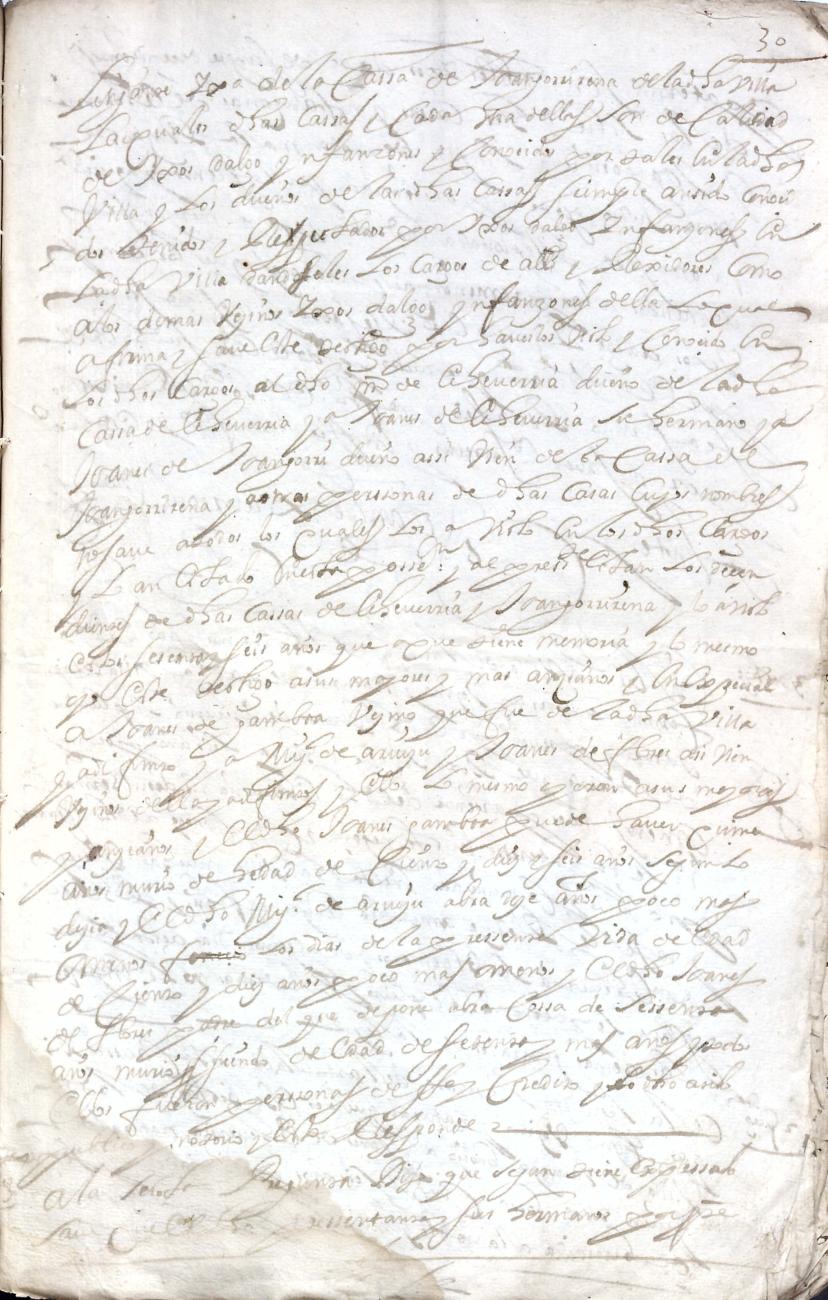 30
de la Cassa de Joangorrirena de la dha villa
las quales dhas Cassas y Cada una dellas son de Calidad
de Yxos dalgo ynfanzones y Conocidas por tales en la dha
Villa y los dueños de las dhas Cassas siempre an sido Conoci
dos tenidos y Respectados por Yxos dalgo Infanzones en
la dha Villa dandoseles los Cargos de alldes y Rexidores Como
a los demas vezinos Yxos dalgo ynfanzones della lo qual
afirma y save este testigo por haverlos visto y Conocido en
los dhos Cargos al dho de Echeverria dueño de la dha
Cassa de Echeverria y a Joanes de Echeverria su hermano y a
Joanes de Joangorri dueño assi vien de la Cassa de
Joangorrirena y a otras perssonas de dhas Casas Cuyos nombres
no save a todos los Quales los a visto en los dhos Cargos
y an estado en esta posse.on y al press.te estan los decen
dientes de dhas Cassas de Echeverria y Joangorrirena y lo a visto
en los sesenta y seis años que tiene memoria y lo mesmo
oyo este testigo a sus mayores y mas ancianos y en especial
a Joanes de gamboa vezino que fue de la dha Villa
y a Mig.l de aruzu y Joanes de assi vien
vezinos della y ellos lo mesmo oyeron a sus mayores
y ancianos y el dho Joanes gamboa puede haver quinze
años murio de hedad de Ciento y diez y seis años segun lo
dezia y el dho Mig.l de aruzu abra doze años poco mas
o menos los dias de la pressente vida de edad
de Ciento y diez años poco mas o menos y el dho Joanes
de padre del que depone abra Cossa de sessenta
años murio siendo de edad de setenta y mas años todos
ellos fueron perssonas de ffe y Credito y lo dho a sido
publico notorio y esto Responde
a la Pregunta Dijo que segun tiene expressado
sus hermanos por